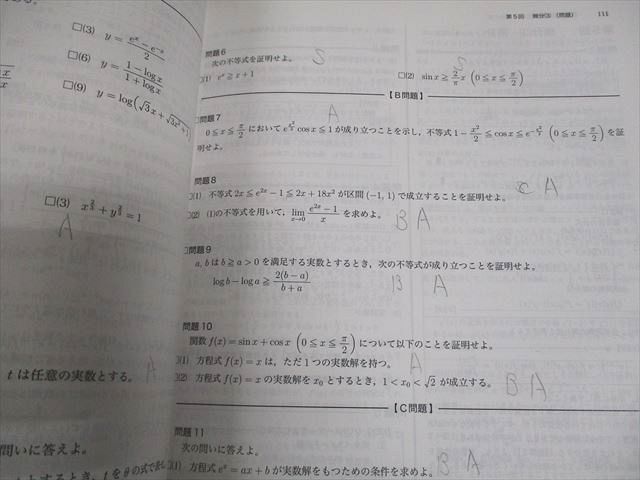 □(3) y = (e^x − e^−x)/2
□(6) y = (1 − log x)/(1 + log x)
□(9) y = log(√3x + √3x²+1)
□(3) x^(2/3) + y^(2/3) = 1
A
t は任意の実数とする。
A
問いに答えよ。
第5回 微分③ (問題) 111
問題6
次の不等式を証明せよ。
□(1) e^x ≧ x + 1
S
□(2) sin x ≧ (2/π)x (0 ≦ x ≦ π/2)
S
【B問題】
□問題7
A
0 ≦ x ≦ π/2 において e^(x²/2) cos x ≦ 1 が成り立つことを示し,不等式 1 − x²/2 ≦ cos x ≦ e^(−x²/2) (0 ≦ x ≦ π/2) を証
明せよ。
問題8
□(1) 不等式 2x ≦ e^2x − 1 ≦ 2x + 18x² が区間 (−1, 1) で成立することを証明せよ。
C A
□(2) (1)の不等式を用いて, lim x→0 (e^2x − 1)/x を求めよ。
B A
□問題9
a, b は b ≧ a > 0 を満足する実数とするとき,次の不等式が成り立つことを証明せよ。
log b − log a ≧ 2(b − a)/(b + a)
B A
問題10
関数 f(x) = sin x + cos x (0 ≦ x ≦ π/2) について以下のことを証明せよ。
□(1) 方程式 f(x) = x は,ただ1つの実数解を持つ。
A
□(2) 方程式 f(x) = x の実数解を x₀ とするとき,1 < x₀ < √2 が成立する。
B A
【C問題】
問題11
次の問いに答えよ。
□(1) 方程式 e^x = ax + b が実数解をもつための条件を求めよ。
B A